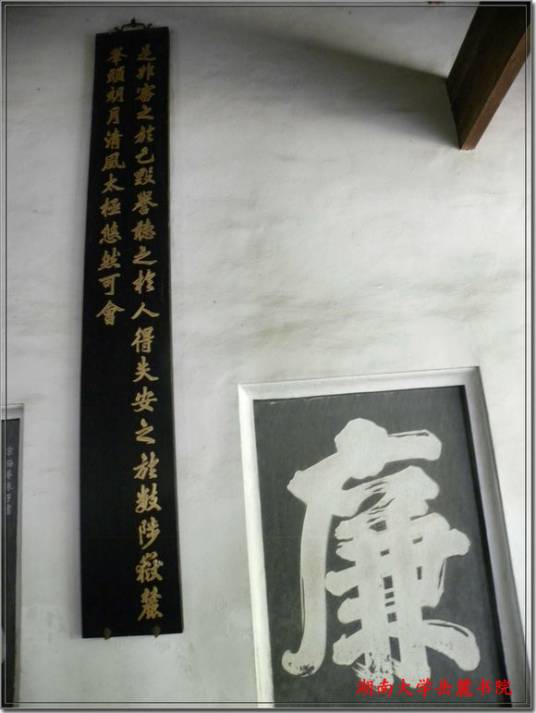 是非審之於己毀譽聽之於人得失安之於數陟嶽麓
峯頭朗月清風太極悠然可會
廉
湖南大学岳麓书院